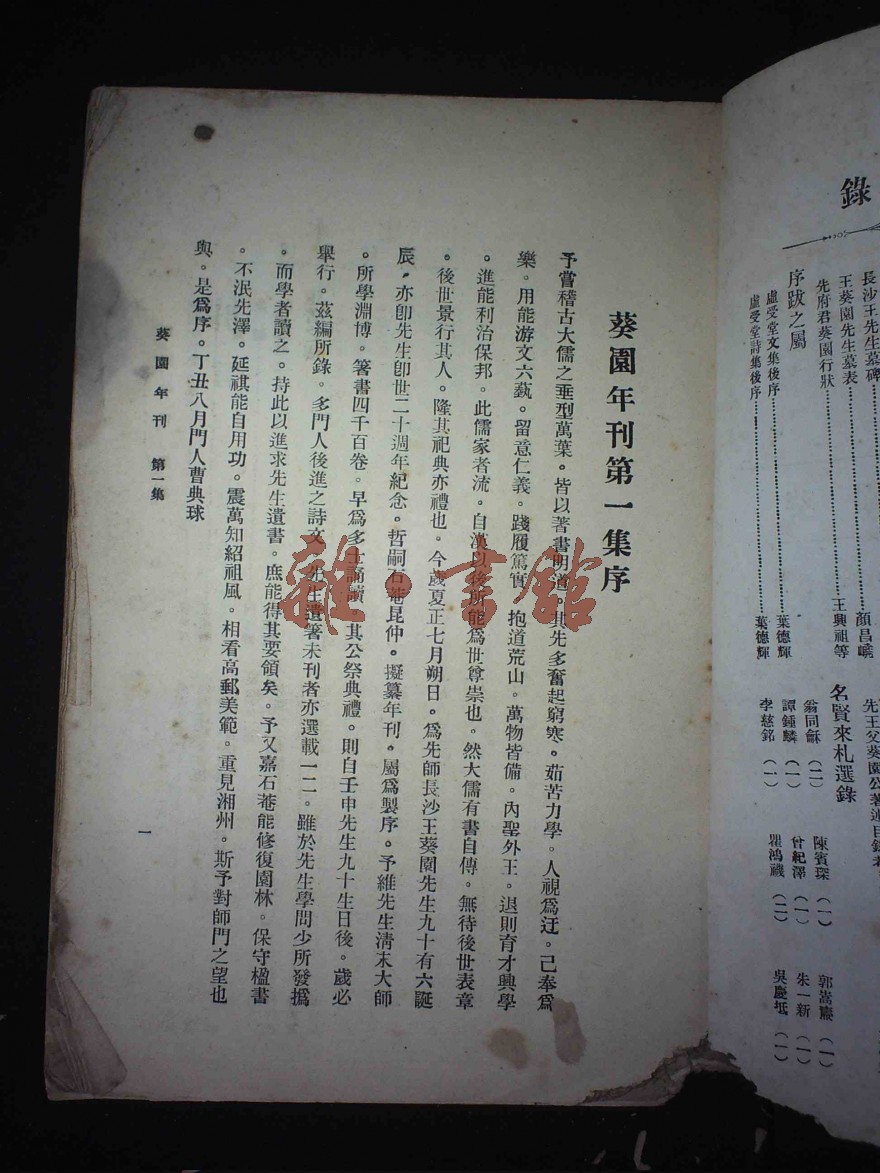 葵園年刊第一集序
予嘗稽古大儒之垂型萬葉。皆以著書明道。其先多奮起窮寒。茹苦力學。人視為迂。己奉為
樂。用能游文六藝。留意仁義。踐履篤實。抱道荒山。萬物皆備。內聖外王。退則育才興學
。進能利治保邦。此儒家者流。自漢以後所能為世尊崇也。然大儒有書自傳。無待後世表章
。後世景行其人。隆其祀典亦禮也。今歲夏正七月朔日。為先師長沙王葵園先生九十有六誕
辰。亦卽先生卽世二十週年紀念。哲嗣石菴昆仲。擬纂年刊。屬為製序。予維先生清末大師
。所學淵博。箸書四千百卷。早為多士誦 。其公祭典禮。則自壬申先生九十生日後。歲必
舉行。茲編所錄。多門人後進之詩文。先生遺箸未刊者亦選載一二。雖於先生學問少所發攄
。而學者讀之。持此以進求先生遺書。庶能得其要領矣。予又嘉石菴能修復園林。保守楹書
。不泯先澤。延祺能自用功。震萬知紹祖風。相看高郵美範。重見湘州。斯予對師門之望也
與。是為序。丁丑八月門人曹典球
葵園年刊 第一集
一
雜·書館
錄
長沙王先生墓碑
王葵園先生墓表……顏昌嶢
先府君葵園行狀……王興祖等
序跋之屬
虛受堂文集後序……葉德輝
虛受堂詩集後序……葉德輝
先王父葵園公著述目錄
名賢來札選錄
翁同龢（二） 陳賓琛（一） 郭嵩燾（一）
譚鍾麟（一） 曾紀澤（一） 朱一新（一）
李慈銘（一） 瞿鴻禨（二） 吳慶坻（一）